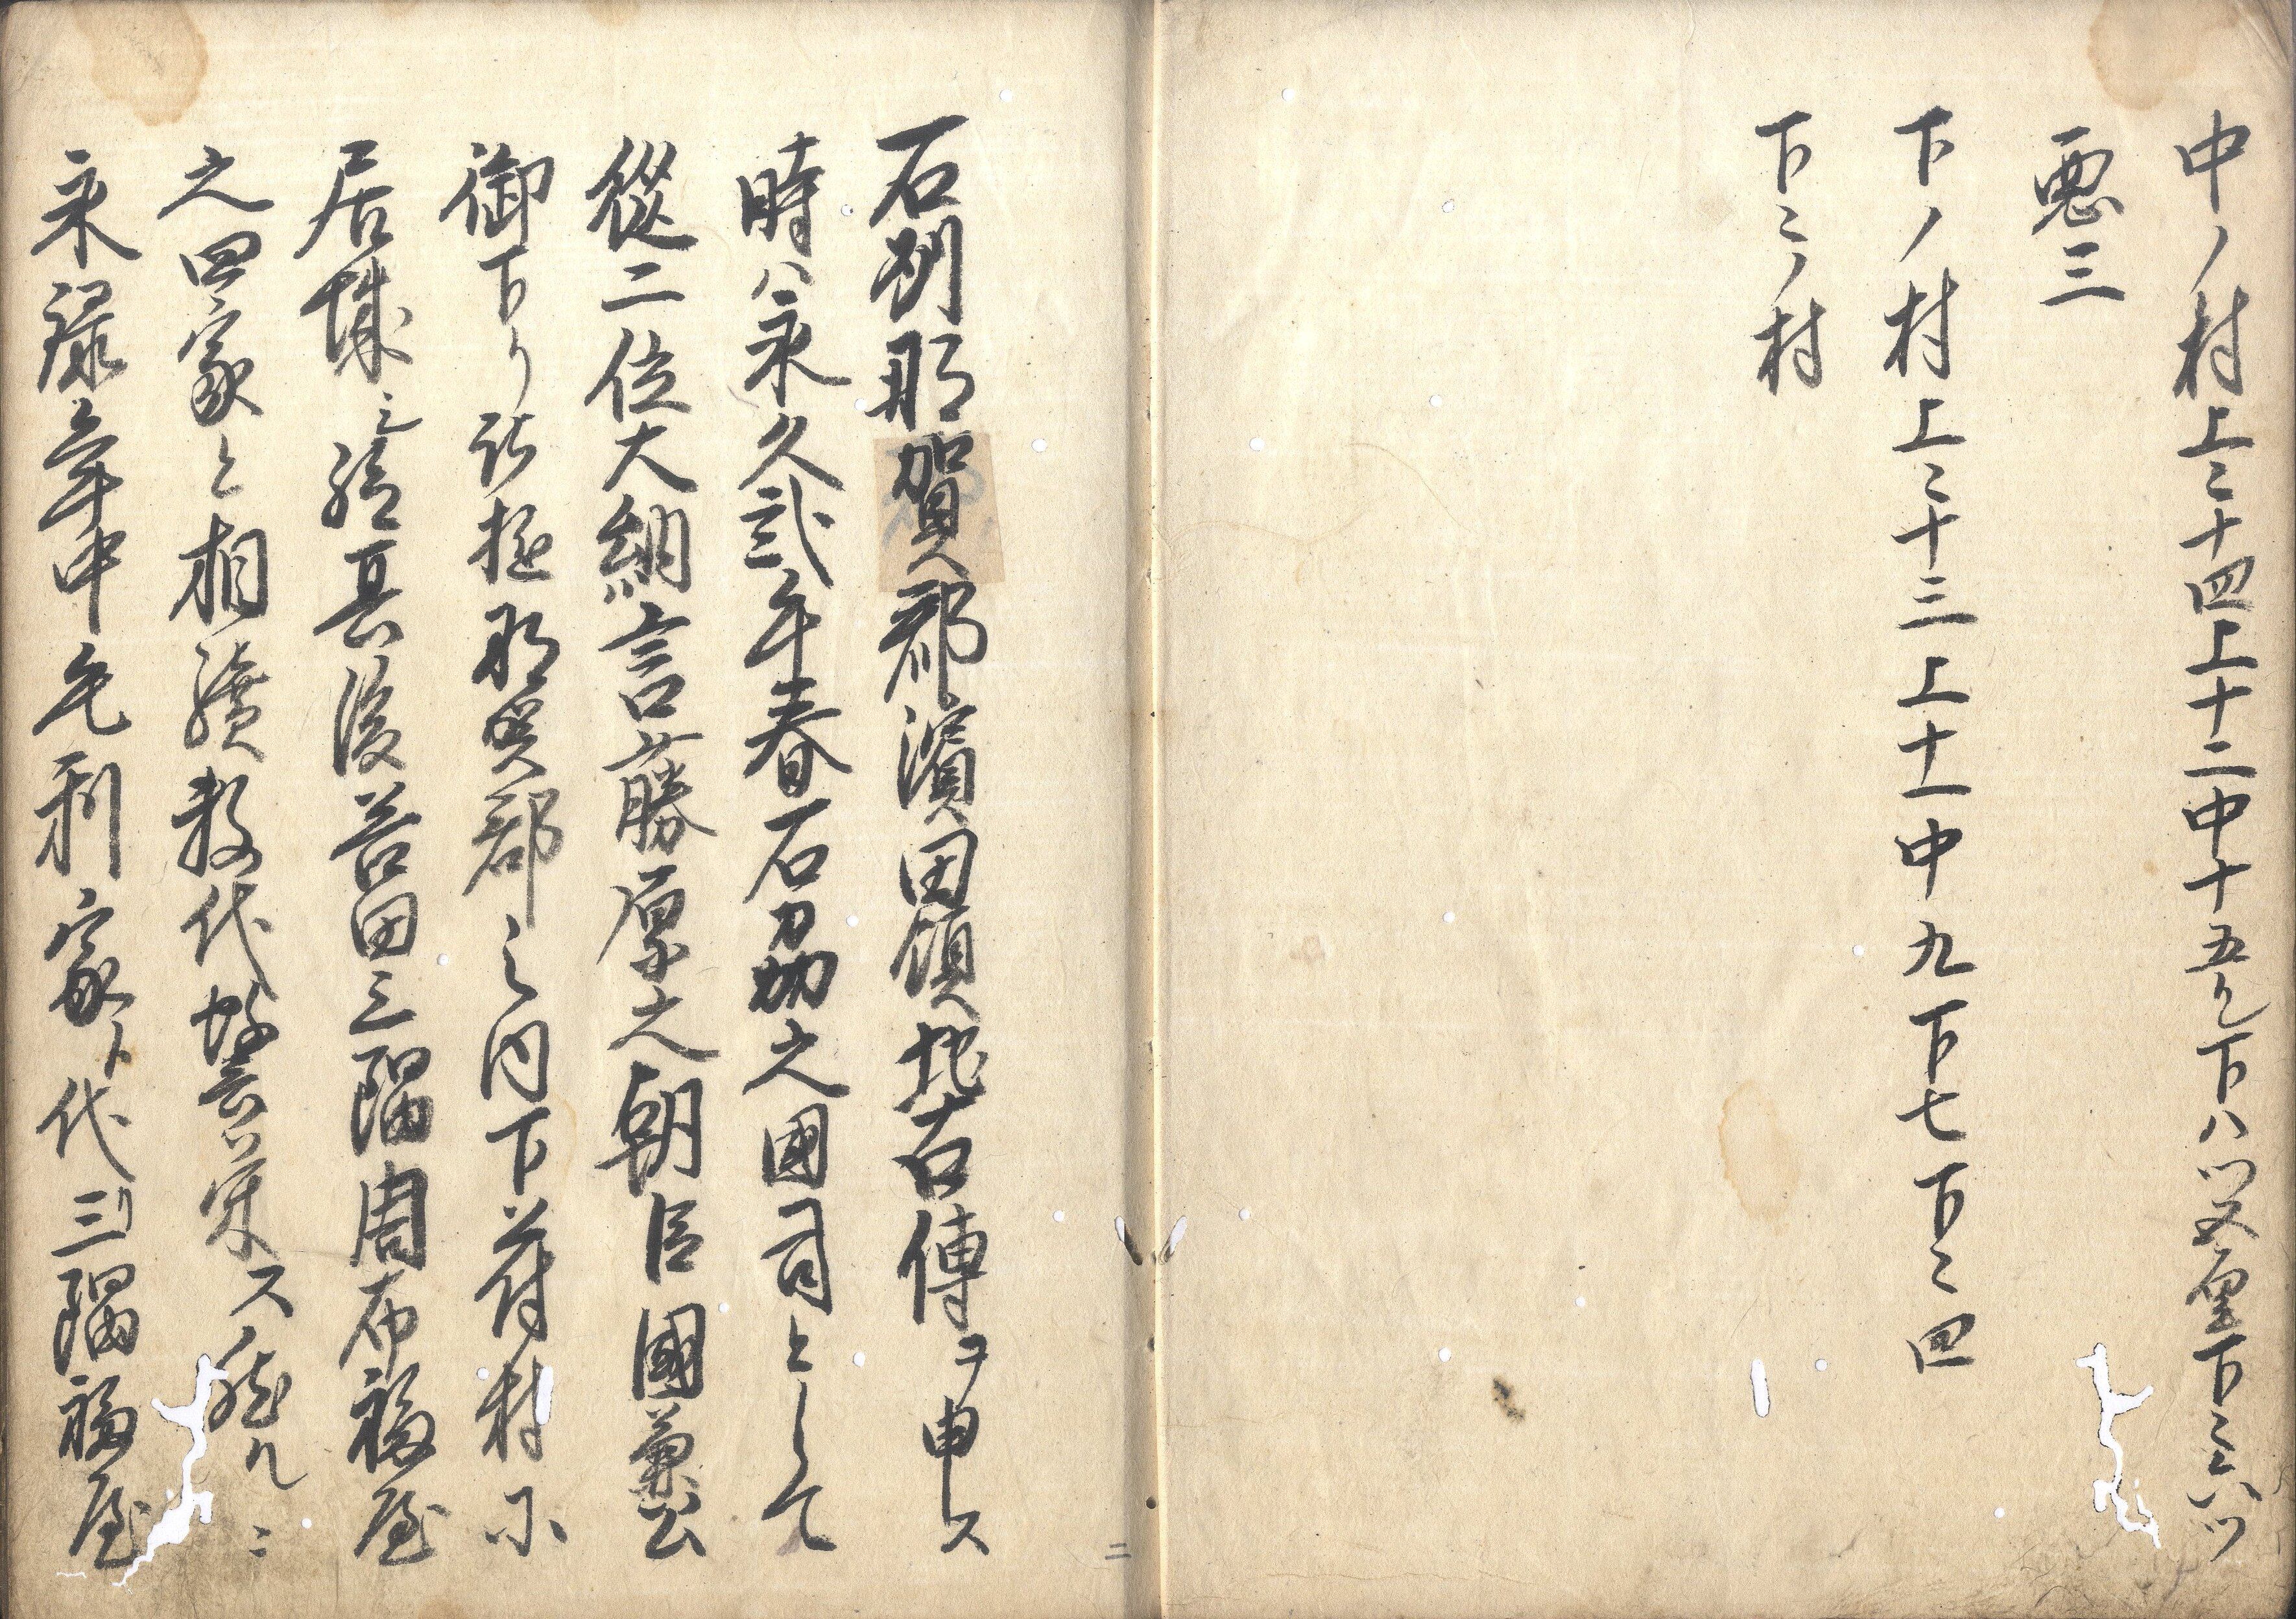 中ノ村上々十四上十二中十五ヶ下ハツ又皇下々六ツ
悪三
下ノ村上々十三上十一中九下七下々四
下々ノ村
石刕那賀郡濱田領地古傳ヲ申ス
時ハ永久弐年春石刕之國司として
從二位大納言藤原之朝臣國兼公
御下り被遊那賀郡之内下府村ニ
居城之給其後益田三隅周布福屋
之四家と相續数代繁栄ス然ルニ
永禄年中毛利家ト代リ三隅福屋
二